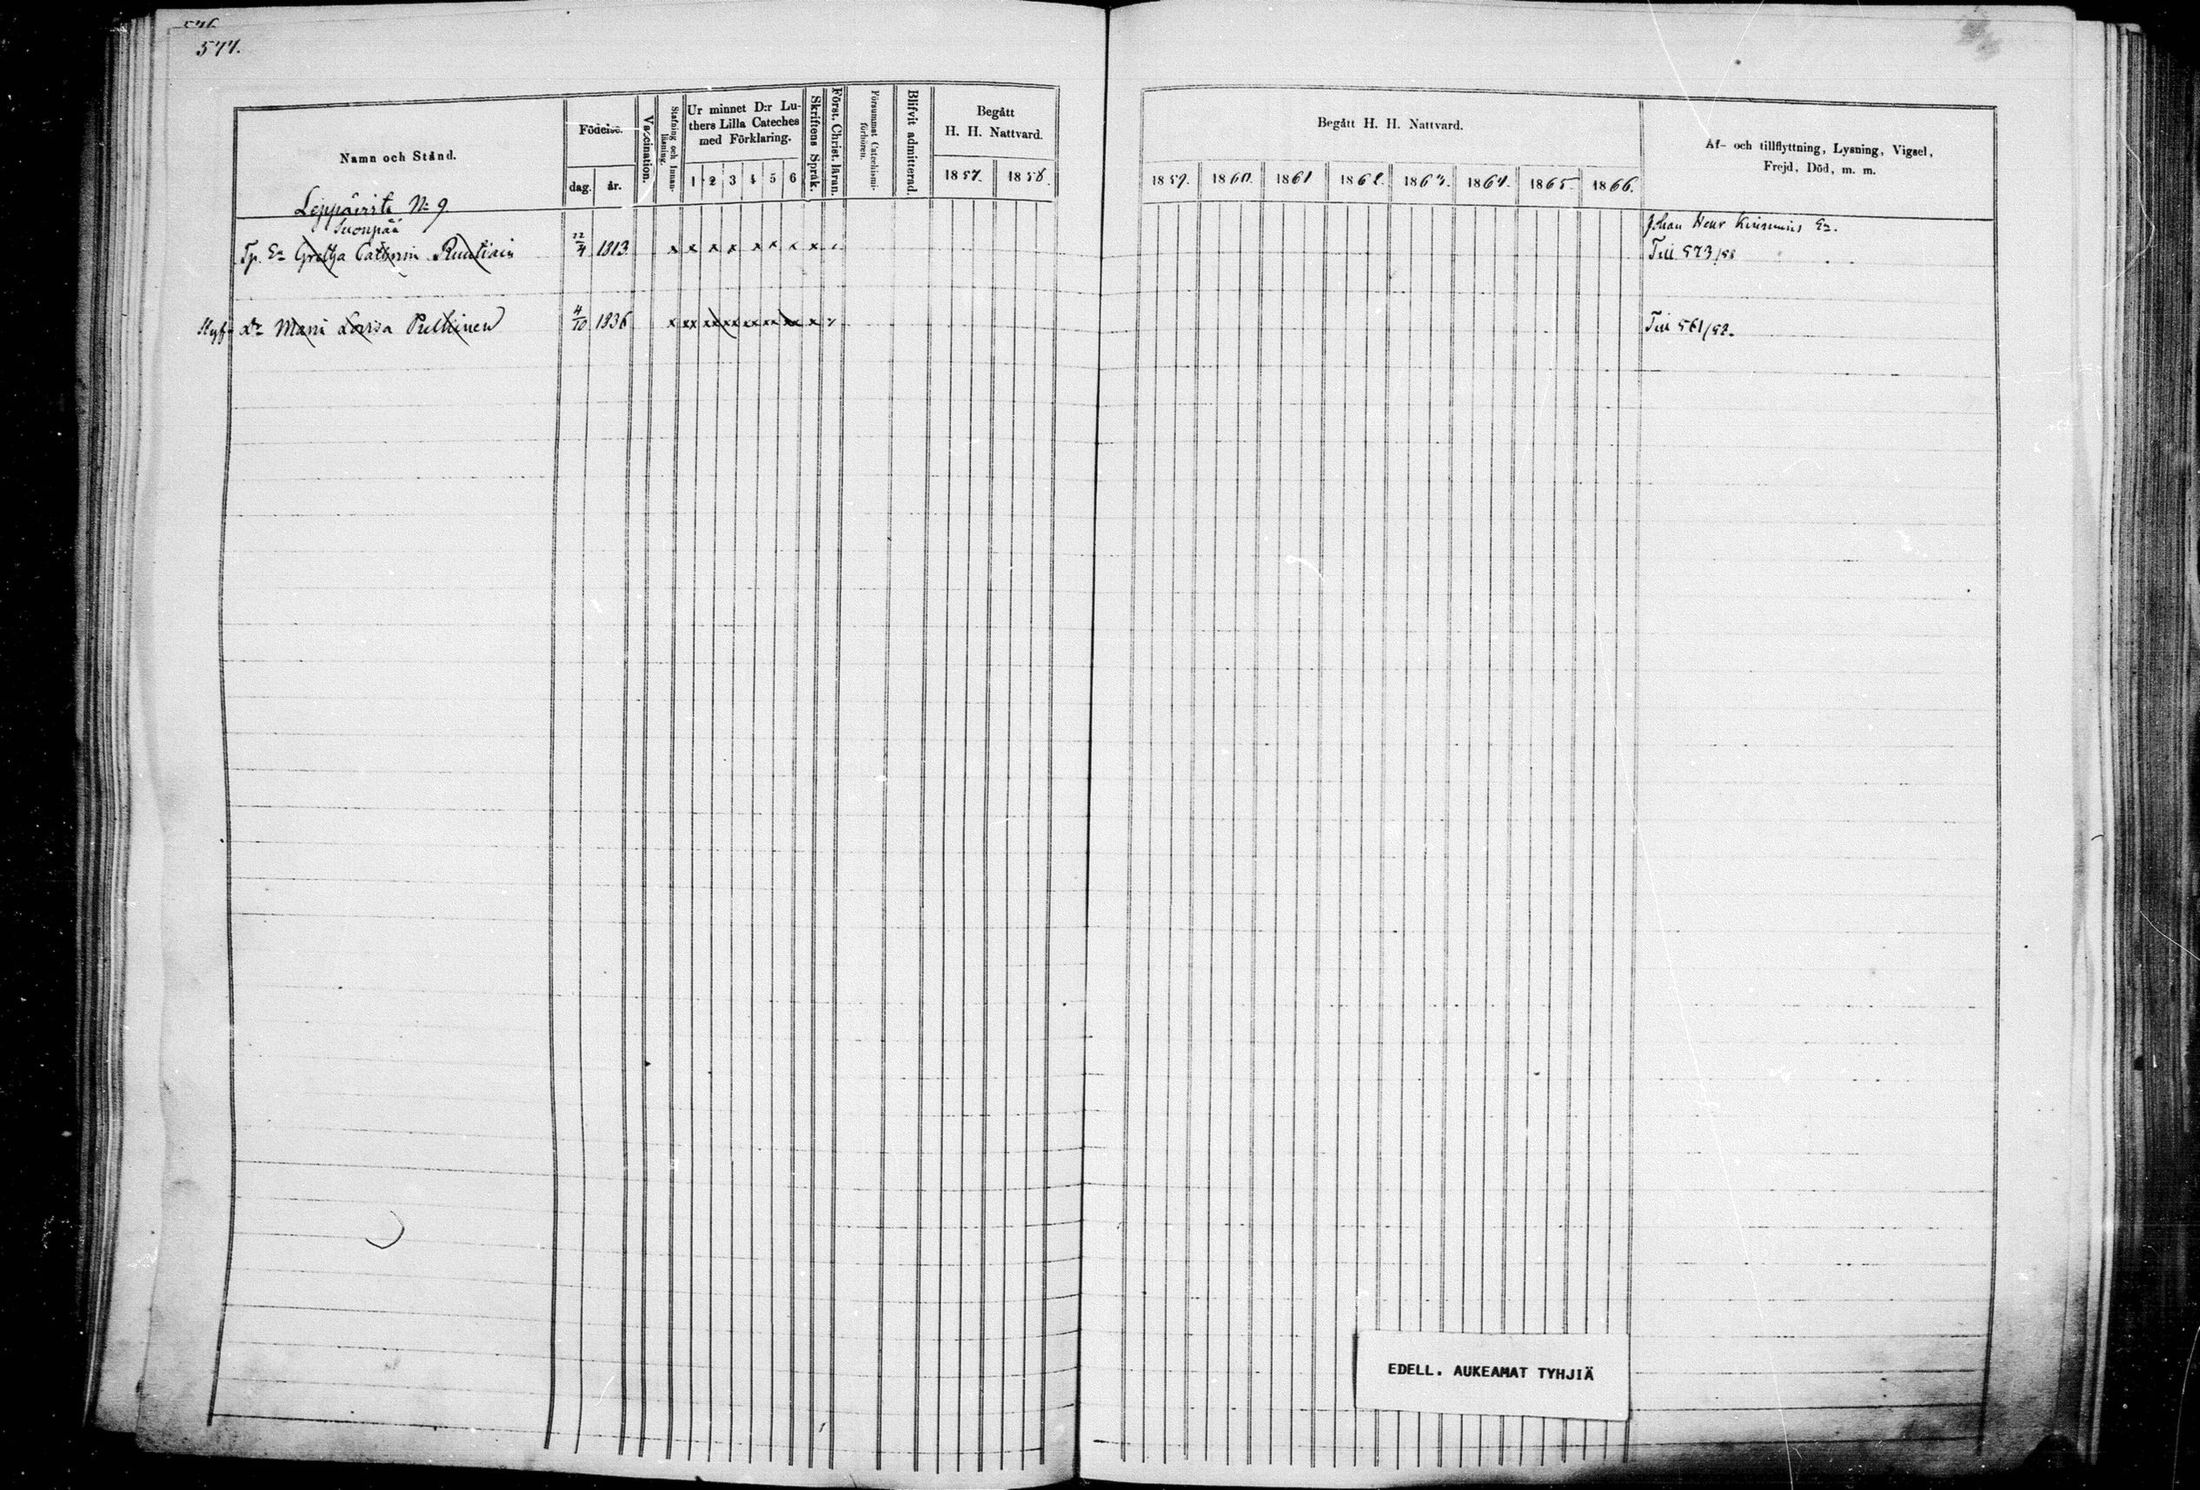 577.
Namn och Stånd.
Födelse.
dag. år.
Vaccination.
Stafning och Innanläsning.
Ur minnet D:r Lu-
thers Lilla Cateches
med Förklaring.
1 2 3 4 5 6
Skriftens Språk.
Först. Christ. läran.
Försummat Catechismi-
förhören.
Blifvit admitterad.
Begått
H. H. Nattvard.
1857. 1858.
Begått H. H. Nattvard.
1859. 1860. 1861 1862. 1863. 1864. 1865. 1866.
Af- och tillflyttning, Lysning, Vigsel,
Frejd, Död, m. m.
Leppävirta No 9.
Suonpää
Johan Henr
Tp. Ea Gretha Cathrin 22/4 1813 x x x x x x x x Till 573/58
dr Maria Lovisa Pulkinen 4/10 1836 x xx xx xx xx xx xx x Till 561/58.
EDELL. AUKEAMAT TYHJIÄ